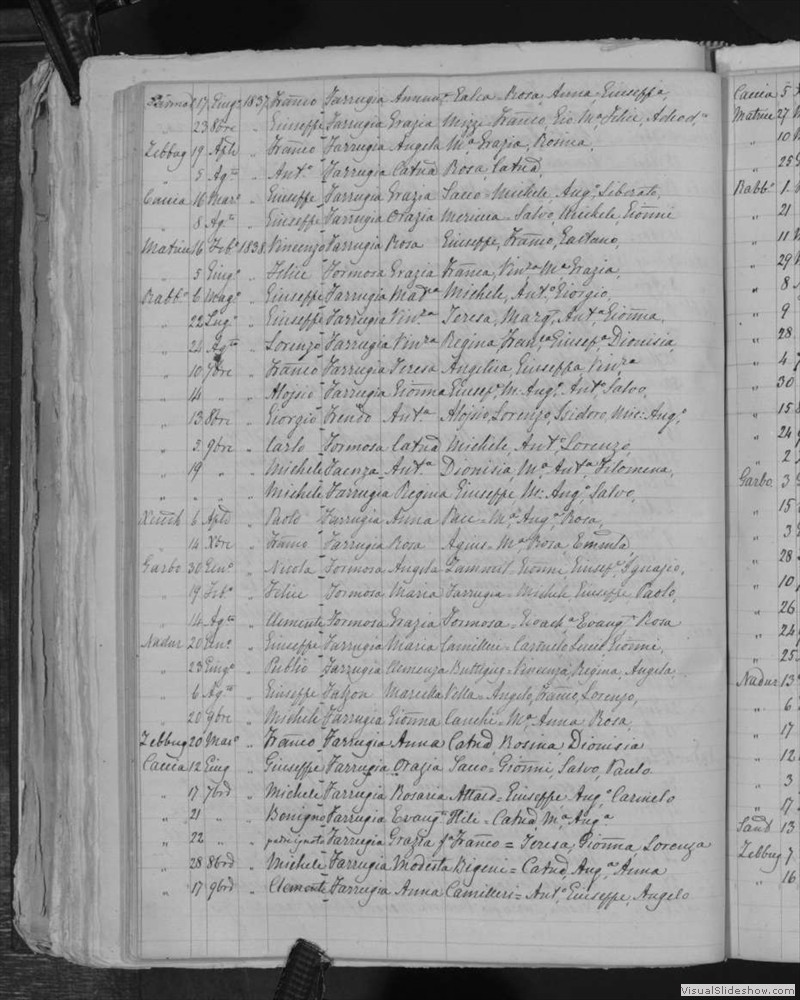 17 Giug.o 1837 Franco Farrugia Annunz.a Galea Rosa, Anna, Giuseppa,
" 23 8bre " Giuseppe Farrugia Grazia Mizzi Franco, Gio. M.a, Felice, Adeod.a
Zebbug 19 Aple " Franco Farrugia Angela M.a Grazia, Rosina,
" 5 Ag.to " Ant.o Farrugia Catnd Rosa, Catnd,
Caccia 16 Mar.o " Giuseppe Farrugia Grazia Sacco Michele Aug.o Liborato,
" 8 Ag.to " Giuseppe Farrugia Orazia Salvo, Michele, Gionni
Matrice 16 Feb.o 1838 Vincenzo Farrugia Rosa Giuseppe, Franco, Gaetano,
" 5 Giug.o " Felice Formosa Grazia Franca, Vinz.a M.a Grazia,
Rabb.o 6 Mag.o " Giuseppe Farrugia Mad.na Michele, Ant.o Giorgio,
" 22 Lug.o " Giuseppe Farrugia Vinz.a Teresa, Marg.a Ant.a Gionna,
" 24 Ag.to " Lorenzo Farrugia Vinz.a Regina, Fran.ca Giusep.a Dionisia,
" 10 7bre " Franco Farrugia Teresa Angelica, Giuseppa, Vinz.a
" 14 " " Aloisio Farrugia Gionna Giusep.e M. Ang.o Ant.o Salvo,
" 13 8bre " Giorgio Ant.a Aloisio, Lorenzo, Isidoro, Mic: Ang.o
" 2 9bre " Carlo Formosa Catnd Michele, Ant.o Lorenzo,
" 19 " " Michele Faenza Ant.a Dionisia, M.a Ant.a Filomena,
" " " " Michele Farrugia Regina Giuseppe M: Ang.o Salvo,
Xeuch 6 Aple " Paolo Farrugia Anna Pace = M.a Ang.a Rosa,
" 14 Xbre " Franco Farrugia Rosa Agius = M.a Rosa, Emmla,
Garbo 30 Gen.o " Nicola Formosa Angela Zammit = Gionni Giusep.e Ignazio,
" 19 Feb.o " Felice Formosa Maria Farrugia = Michele Giuseppe, Paolo,
" 14 Ag.to " Clemente Formosa Grazia Formosa = Gioach.a Evang.a Rosa
Nadur 20 Gen.o " Giuseppe Farrugia Maria Camilleri = Carmelo Luca Gionni,
" 23 Giug.o " Publio Farrugia Clemenza Buttigieg = Vincenza, Regina, Angela,
" 6 Ag.to " Giuseppe Falzon Mariella Vella = Angelo, Franco, Lorenzo,
" 20 9bre " Michele Farrugia Gionna M.a Anna Rosa,
Zebbug 20 Mar.o " Franco Farrugia Anna Catnd, Rosina Dionisia
Caccia 12 Giug " Giuseppe Farrugia Orazia Sacco = Gionni, Salvo, Paulo
" 17 7brd " Michele Farrugia Rosaria Attard = Giuseppe Aug.o Carmelo
" 21 " " Benigno Farrugia Evang.a Hili = Catnd, M.a Aug.a
" 22 " " padre ignoto Farrugia Grazia f.a Franco = Teresa, Gionna, Lorenza
" 28 8brd " Michele Farrugia Modesta Bigeni = Catnd, Aug.a Anna
" 17 9brd " Clemente Farrugia Anna Camilleri = Ant.o Giuseppe, Angelo
Caccia 5
Matrice 27
" 10
" 25
Rabb.o 1
" 21
" 11
" 29
" 8
" 9
" 28
" 4
" 30
" 15
" 24
" 2
Garbo 3
" 15
" 3
" 28
" 10
" 26
" 24
" 25
Nadur 13
" 6
" 17
" 12
" 3
" 17
Sand 13
Zebbug 7
" 16
VisualSlideshow.com